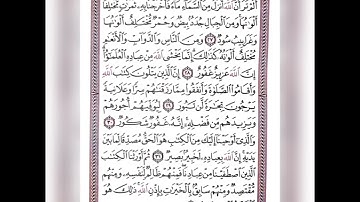 أَلَمْ تَرَ أَنَّ ٱللَّهَ أَنزَلَ مِنَ ٱلسَّمَآءِ مَآءً فَأَخْرَجْنَا بِهِۦ ثَمَرَٰتٍ مُّخْتَلِفًا
أَلْوَٰنُهَا وَمِنَ ٱلْجِبَالِ جُدَدٌۢ بِيضٌ وَحُمْرٌ مُّخْتَلِفٌ أَلْوَٰنُهَا
وَغَرَابِيبُ سُودٌ ٢٧ وَمِنَ ٱلنَّاسِ وَٱلدَّوَآبِّ وَٱلْأَنْعَٰمِ
مُخْتَلِفٌ أَلْوَٰنُهُۥ كَذَٰلِكَ إِنَّمَا يَخْشَى ٱللَّهَ مِنْ عِبَادِهِ ٱلْعُلَمَٰٓؤُا۟
إِنَّ ٱللَّهَ عَزِيزٌ غَفُورٌ ٢٨ إِنَّ ٱلَّذِينَ يَتْلُونَ كِتَٰبَ ٱللَّهِ
وَأَقَامُوا۟ ٱلصَّلَوٰةَ وَأَنفَقُوا۟ مِمَّا رَزَقْنَٰهُمْ سِرًّا وَعَلَانِيَةً
يَرْجُونَ تِجَٰرَةً لَّن تَبُورَ ٢٩ لِيُوَفِّيَهُمْ أُجُورَهُمْ
وَيَزِيدَهُم مِّن فَضْلِهِۦٓ إِنَّهُۥ غَفُورٌ شَكُورٌ ٣٠
وَٱلَّذِىٓ أَوْحَيْنَآ إِلَيْكَ مِنَ ٱلْكِتَٰبِ هُوَ ٱلْحَقُّ مُصَدِّقًا لِّمَا بَيْنَ
يَدَيْهِ إِنَّ ٱللَّهَ بِعِبَادِهِۦ لَخَبِيرٌۢ بَصِيرٌ ٣١ ثُمَّ أَوْرَثْنَا ٱلْكِتَٰبَ
ٱلَّذِينَ ٱصْطَفَيْنَا مِنْ عِبَادِنَا فَمِنْهُمْ ظَالِمٌ لِّنَفْسِهِۦ وَمِنْهُم
مُّقْتَصِدٌ وَمِنْهُمْ سَابِقٌۢ بِٱلْخَيْرَٰتِ بِإِذْنِ ٱللَّهِ ذَٰلِكَ هُوَ